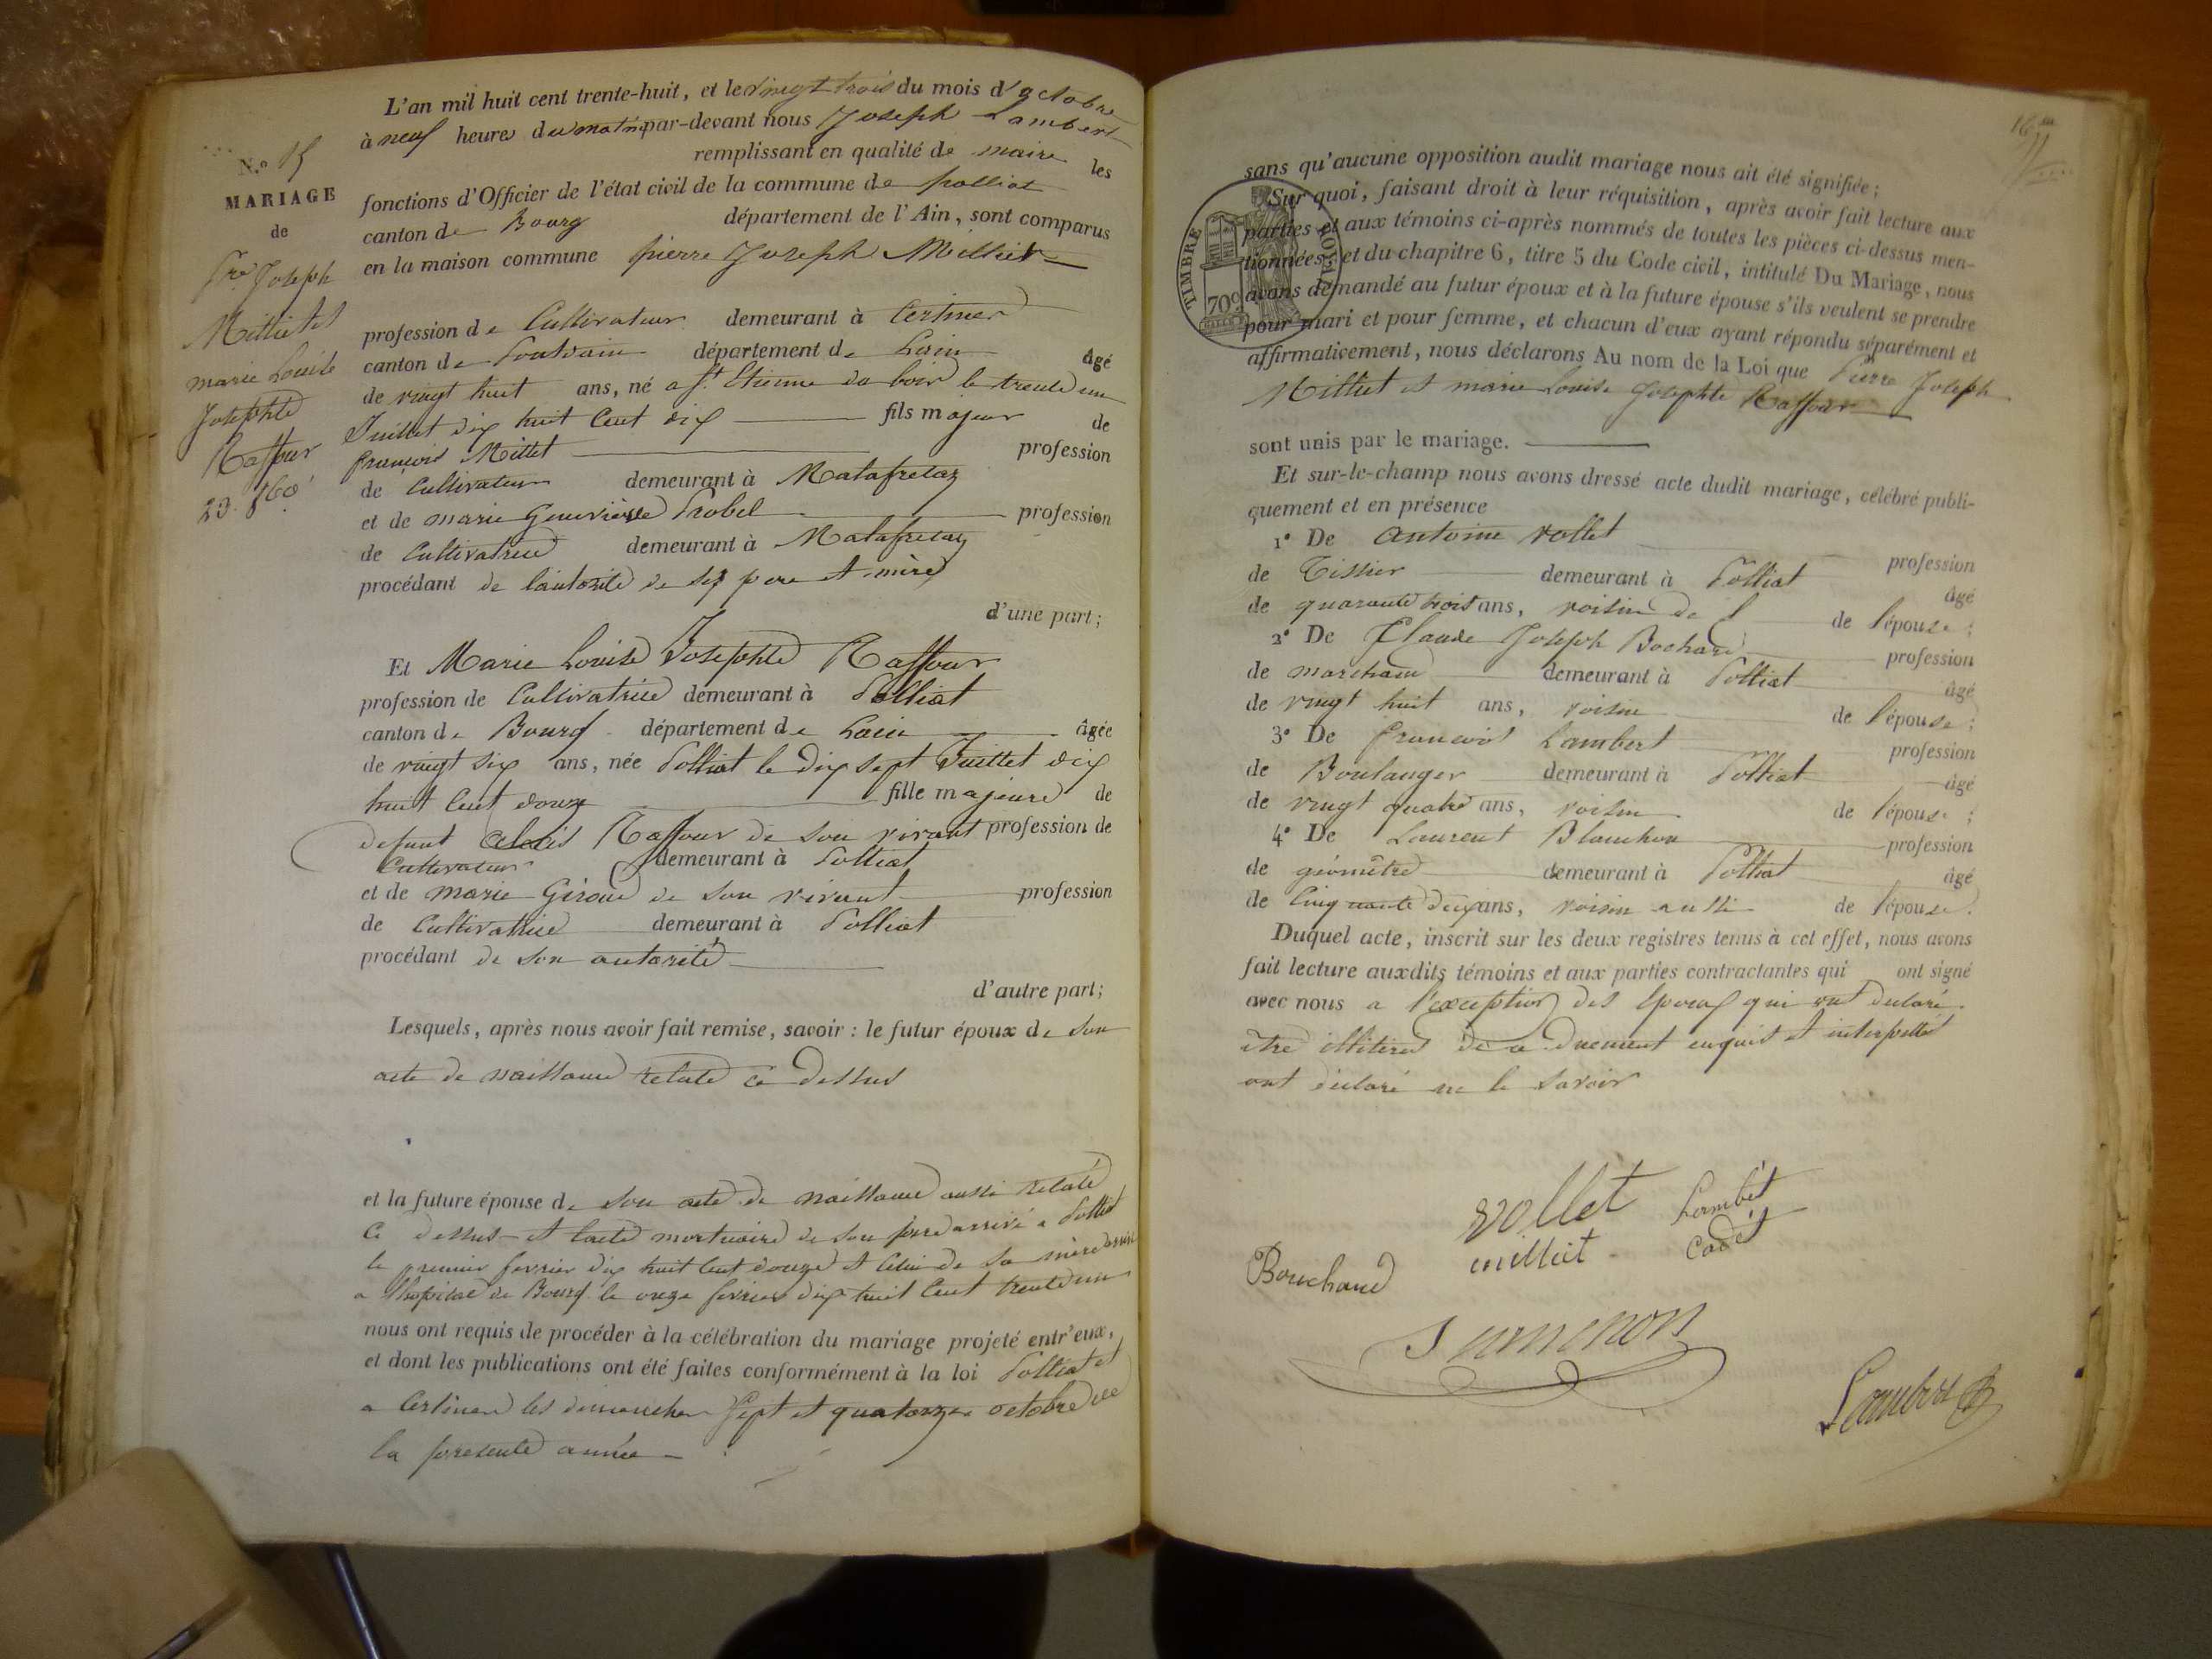 N.º 15
MARIAGE
de
Pre Joseph
Milliet et
marie Louise
Josephte
Raffour
23. 8bre
L'an mil huit cent trente-huit, et le vingt trois du mois d'octobre
à neuf heures du matin par-devant nous Joseph Lambert
remplissant en qualité de maire les
fonctions d'Officier de l'état civil de la commune de polliat
canton de Bourg département de l'Ain, sont comparus
en la maison commune pierre Joseph Milliet
profession de Cultivateur demeurant à Certines
canton de Pontdain département de Lain âgé
de vingt huit ans, né a St. Etienne du bois le trente un
Juillet dix huit Cent dix fils majeur de
françois Milliet profession
de Cultivateur demeurant à Matafretaz
et de marie Genevieve Probel profession
de Cultivatrice demeurant à Matafretaz
procédant de lautorité de ses pere et mère
d'une part;
Et Marie Louise Josephte Raffour
profession de Cultivatrice demeurant à Polliat
canton de Bourg département de Lain âgée
de vingt six ans, née Polliat le dix sept Juillet dix
huit Cent douze fille majeure de
defunt Alexis Raffour de son vivant profession de
Cultivateur demeurant à Polliat
et de marie Giroud de son vivant profession
de Cultivatrice demeurant à Polliat
procédant de son autorité
d'autre part;
Lesquels, après nous avoir fait remise, savoir : le futur époux de son
acte de naissance relaté ce dessus
et la future épouse de son acte de naissance aussi relaté
ce dessus et lacte mortuaire de son pere arrivé a Polliat
le premier fevrier dix huit Cent douze et Celui de sa mère arrivé
a lhopital de Bourg le onze fevrier dix huit Cent trente un
nous ont requis de procéder à la célébration du mariage projeté entr'eux,
et dont les publications ont été faites conformément à la loi Polliat et
a Certines les dimanches Sept et quatorze octobre de
la presente année
sans qu'aucune opposition audit mariage nous ait été signifiée;
Sur quoi, faisant droit à leur réquisition, après avoir fait lecture aux
parties et aux témoins ci-après nommés de toutes les pièces ci-dessus men-
tionnées, et du chapitre 6, titre 5 du Code civil, intitulé Du Mariage, nous
avons demandé au futur époux et à la future épouse s'ils veulent se prendre
pour mari et pour femme, et chacun d'eux ayant répondu séparément et
affirmativement, nous déclarons Au nom de la Loi que Pierre Joseph
Milliet et marie Louise Josephte Raffour
sont unis par le mariage.
TIMBRE ROYAL
70c
Et sur-le-champ nous avons dressé acte dudit mariage, célébré publi-
quement et en présence
1º De Antoine vollet profession
de Tissier demeurant à Polliat âgé
de quarante trois ans, voisin de de l'épouse;
2º De Claude Joseph Bochard profession
de marchand demeurant à Polliat âgé
de vingt huit ans, voisin de l'épouse;
3º De francois Lambert profession
de Boulanger demeurant à Polliat âgé
de vingt quatre ans, voisin de l'épouse;
4º De Laurent Blanchon profession
de géomêtre demeurant à Polliat âgé
de Cinquante deux ans, voisin aussi de l'épouse.
Duquel acte, inscrit sur les deux registres tenus à cet effet, nous avons
fait lecture auxdits témoins et aux parties contractantes qui ont signé
avec nous a l'exception des époux qui ont declaré
être illitires de ce duement enquis et interpellés
ont déclaré ne le savoir
vollet Lambêt
Bouchard milliet cadêt
Lambert